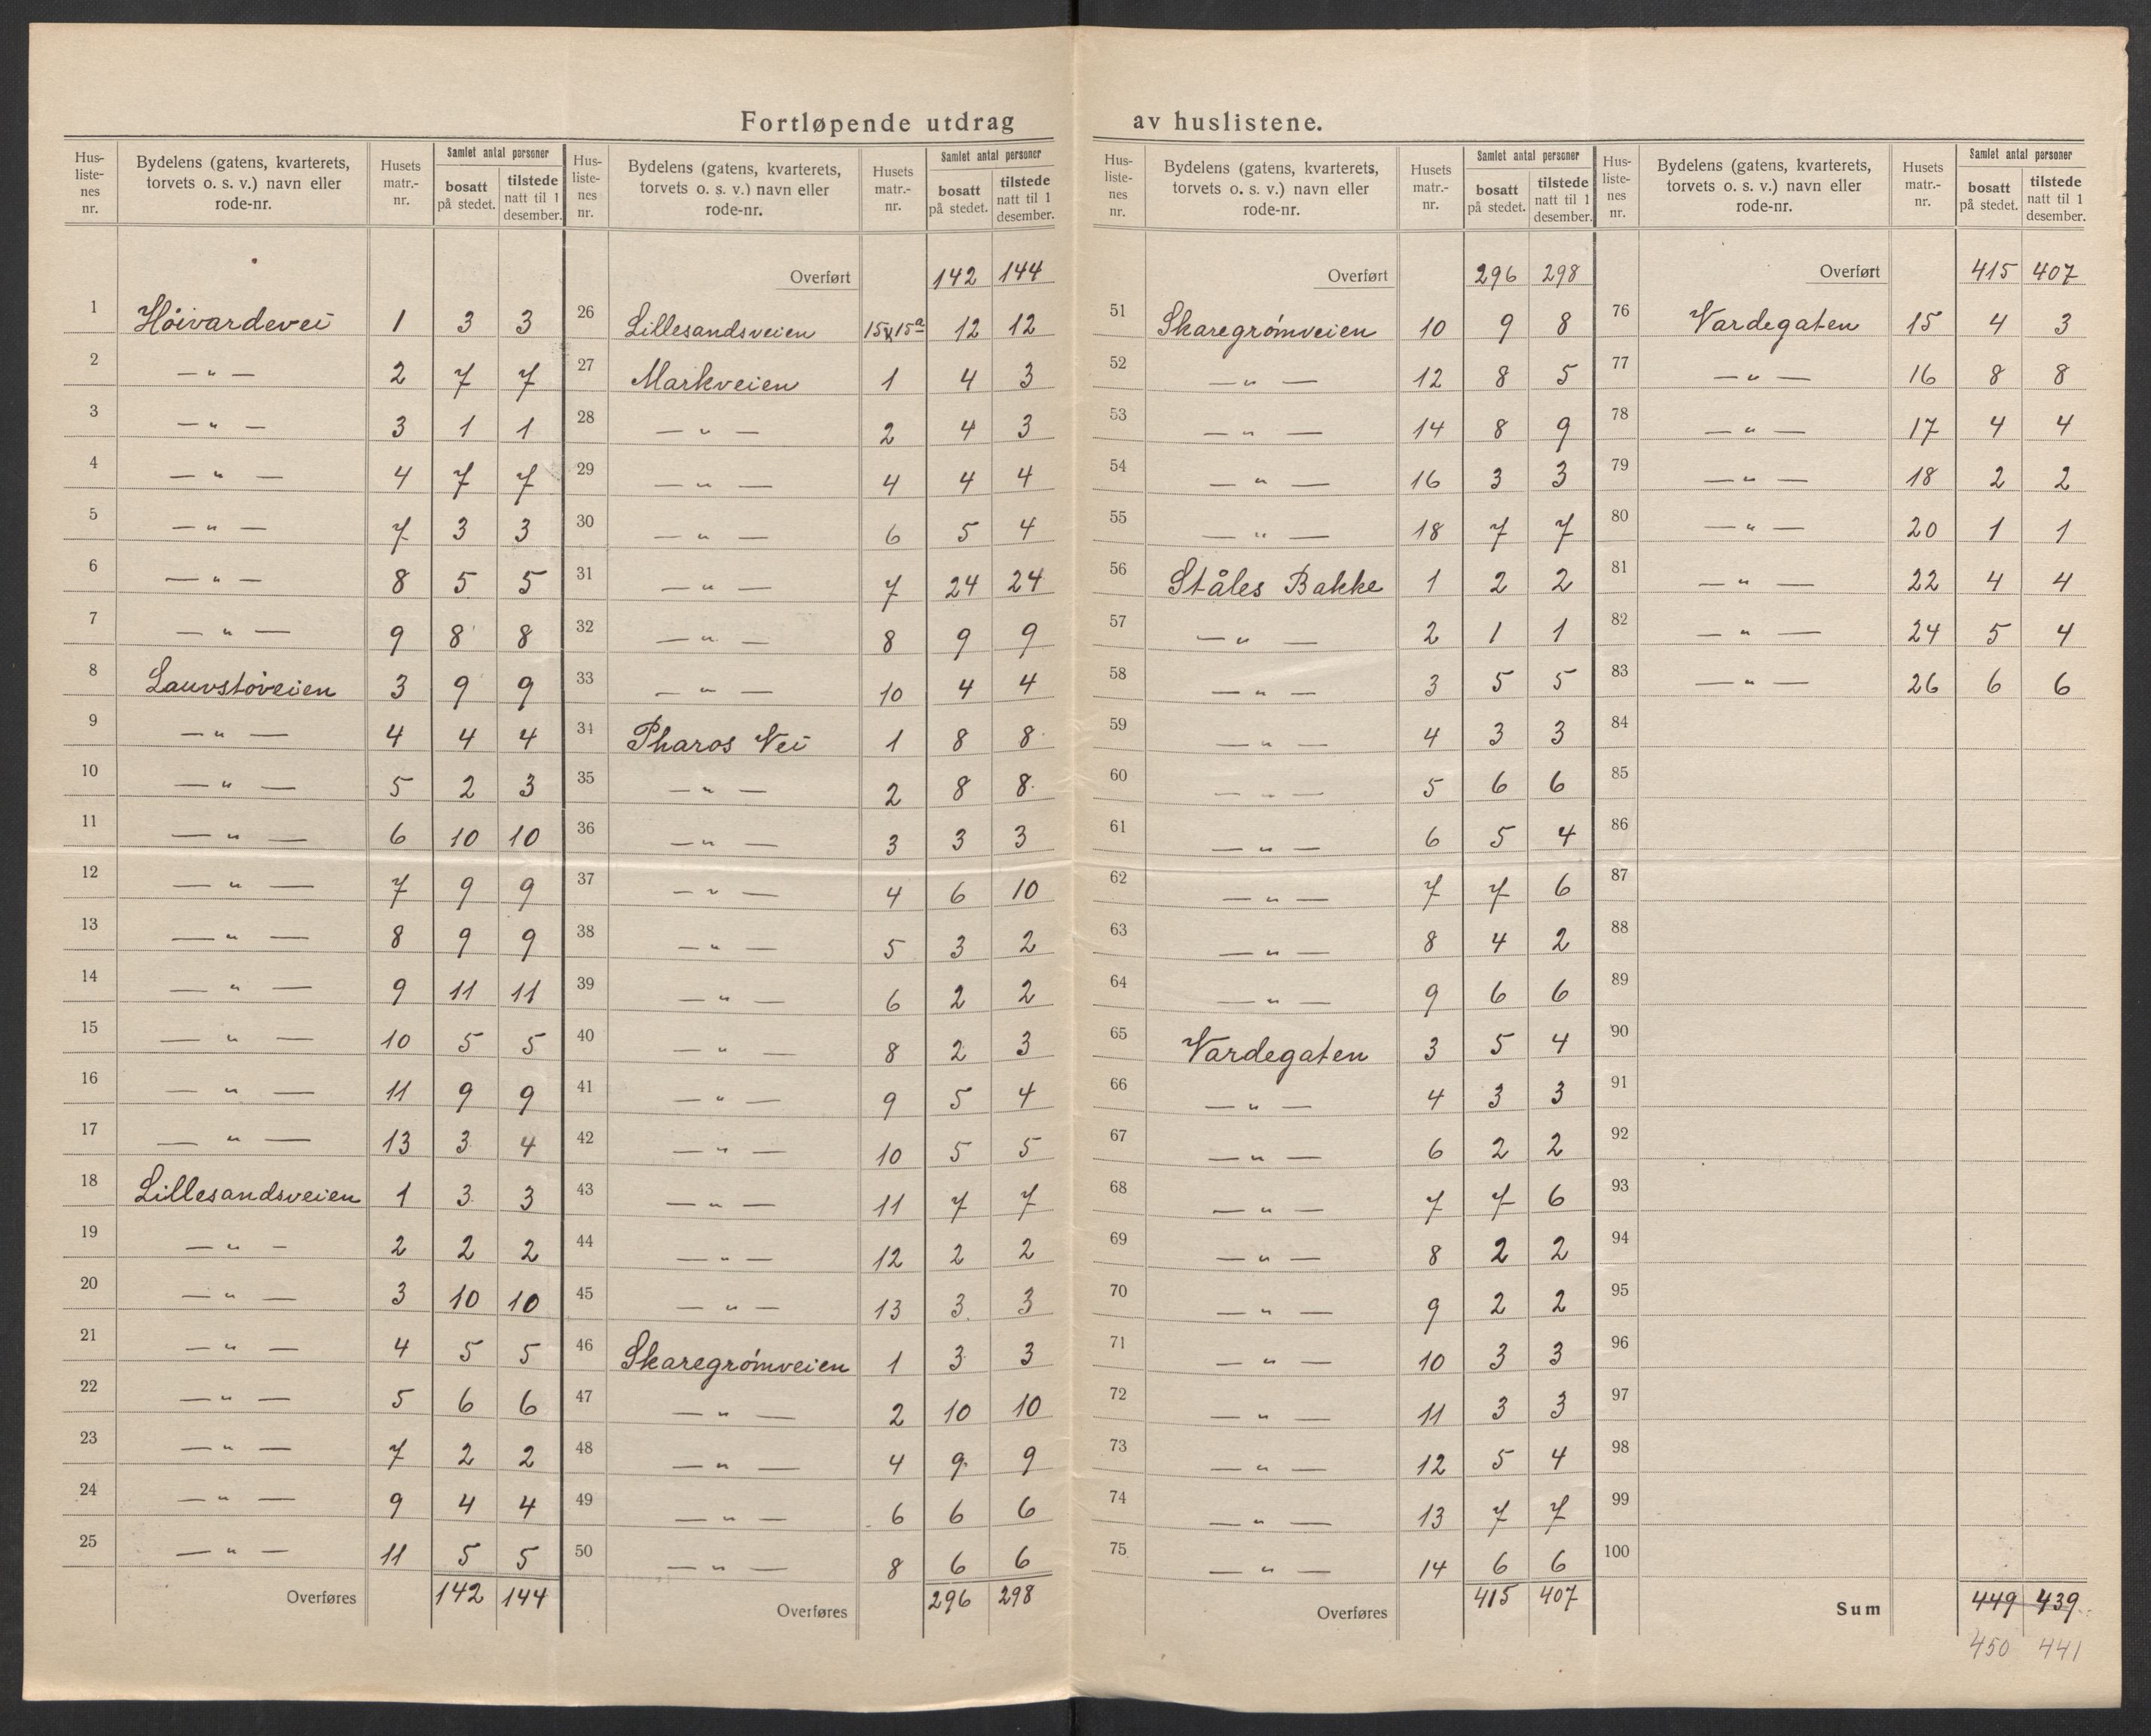 Fortløpende utdrag av huslistene.
Hus-liste-nes nr. | Bydelens (gatens, kvarterets, torvets o. s. v.) navn eller rode-nr. | Husets matr.-nr. | Samlet antal personer bosatt på stedet. | tilstede natt til 1 desember.
1 Höivardevei 1 3 3
2 —„— 2 7 7
3 —„— 3 1 1
4 —„— 4 7 7
5 —„— 7 3 3
6 —„— 8 5 5
7 —„— 9 8 8
8 Lauvstöveien 3 9 9
9 —„— 4 4 4
10 —„— 5 2 3
11 —„— 6 10 10
12 —„— 7 9 9
13 —„— 8 9 9
14 —„— 9 11 11
15 —„— 10 5 5
16 —„— 11 9 9
17 —„— 13 3 4
18 Lillesandsveien 1 3 3
19 —„— 2 2 2
20 —„— 3 10 10
21 —„— 4 5 5
22 —„— 5 6 6
23 —„— 7 2 2
24 —„— 9 4 4
25 —„— 11 5 5
Overføres 142 144
Hus-liste-nes nr. | Bydelens (gatens, kvarterets, torvets o. s. v.) navn eller rode-nr. | Husets matr.-nr. | Samlet antal personer bosatt på stedet. | tilstede natt til 1 desember.
Overført 142 144
26 Lillesandsveien 15 & 15a 12 12
27 Markveien 1 4 3
28 —„— 2 4 3
29 —„— 4 4 4
30 —„— 6 5 4
31 —„— 7 24 24
32 —„— 8 9 9
33 —„— 10 4 4
34 Pharos Vei 1 8 8
35 —„— 2 8 8
36 —„— 3 3 3
37 —„— 4 6 10
38 —„— 5 3 2
39 —„— 6 2 2
40 —„— 8 2 3
41 —„— 9 5 4
42 —„— 10 5 5
43 —„— 11 7 7
44 —„— 12 2 2
45 —„— 13 3 3
46 Skaregrómveien 1 3 3
47 —„— 2 10 10
48 —„— 4 9 9
49 —„— 6 6 6
50 —„— 8 6 6
Overføres 296 298
Hus-liste-nes nr. | Bydelens (gatens, kvarterets, torvets o. s. v.) navn eller rode-nr. | Husets matr.-nr. | Samlet antal personer bosatt på stedet. | tilstede natt til 1 desember.
Overført 296 298
51 Skaregrómveien 10 9 8
52 —„— 12 8 5
53 —„— 14 8 9
54 —„— 16 3 3
55 —„— 18 7 7
56 Ståles Bakke 1 2 2
57 —„— 2 1 1
58 —„— 3 5 5
59 —„— 4 3 3
60 —„— 5 6 6
61 —„— 6 5 4
62 —„— 7 7 6
63 —„— 8 4 2
64 —„— 9 6 6
65 Vardegaten 3 5 4
66 —„— 4 3 3
67 —„— 6 2 2
68 —„— 7 7 6
69 —„— 8 2 2
70 —„— 9 2 2
71 —„— 10 3 3
72 —„— 11 3 3
73 —„— 12 5 4
74 —„— 13 7 7
75 —„— 14 6 6
Overføres 415 407
Hus-liste-nes nr. | Bydelens (gatens, kvarterets, torvets o. s. v.) navn eller rode-nr. | Husets matr.-nr. | Samlet antal personer bosatt på stedet. | tilstede natt til 1 desember.
Overført 415 407
76 Vardegaten 15 4 3
77 —„— 16 8 8
78 —„— 17 4 4
79 —„— 18 2 2
80 —„— 20 1 1
81 —„— 22 4 4
82 —„— 24 5 4
83 —„— 26 6 6
84
85
86
87
88
89
90
91
92
93
94
95
96
97
98
99
100
Sum 449 439
450 441